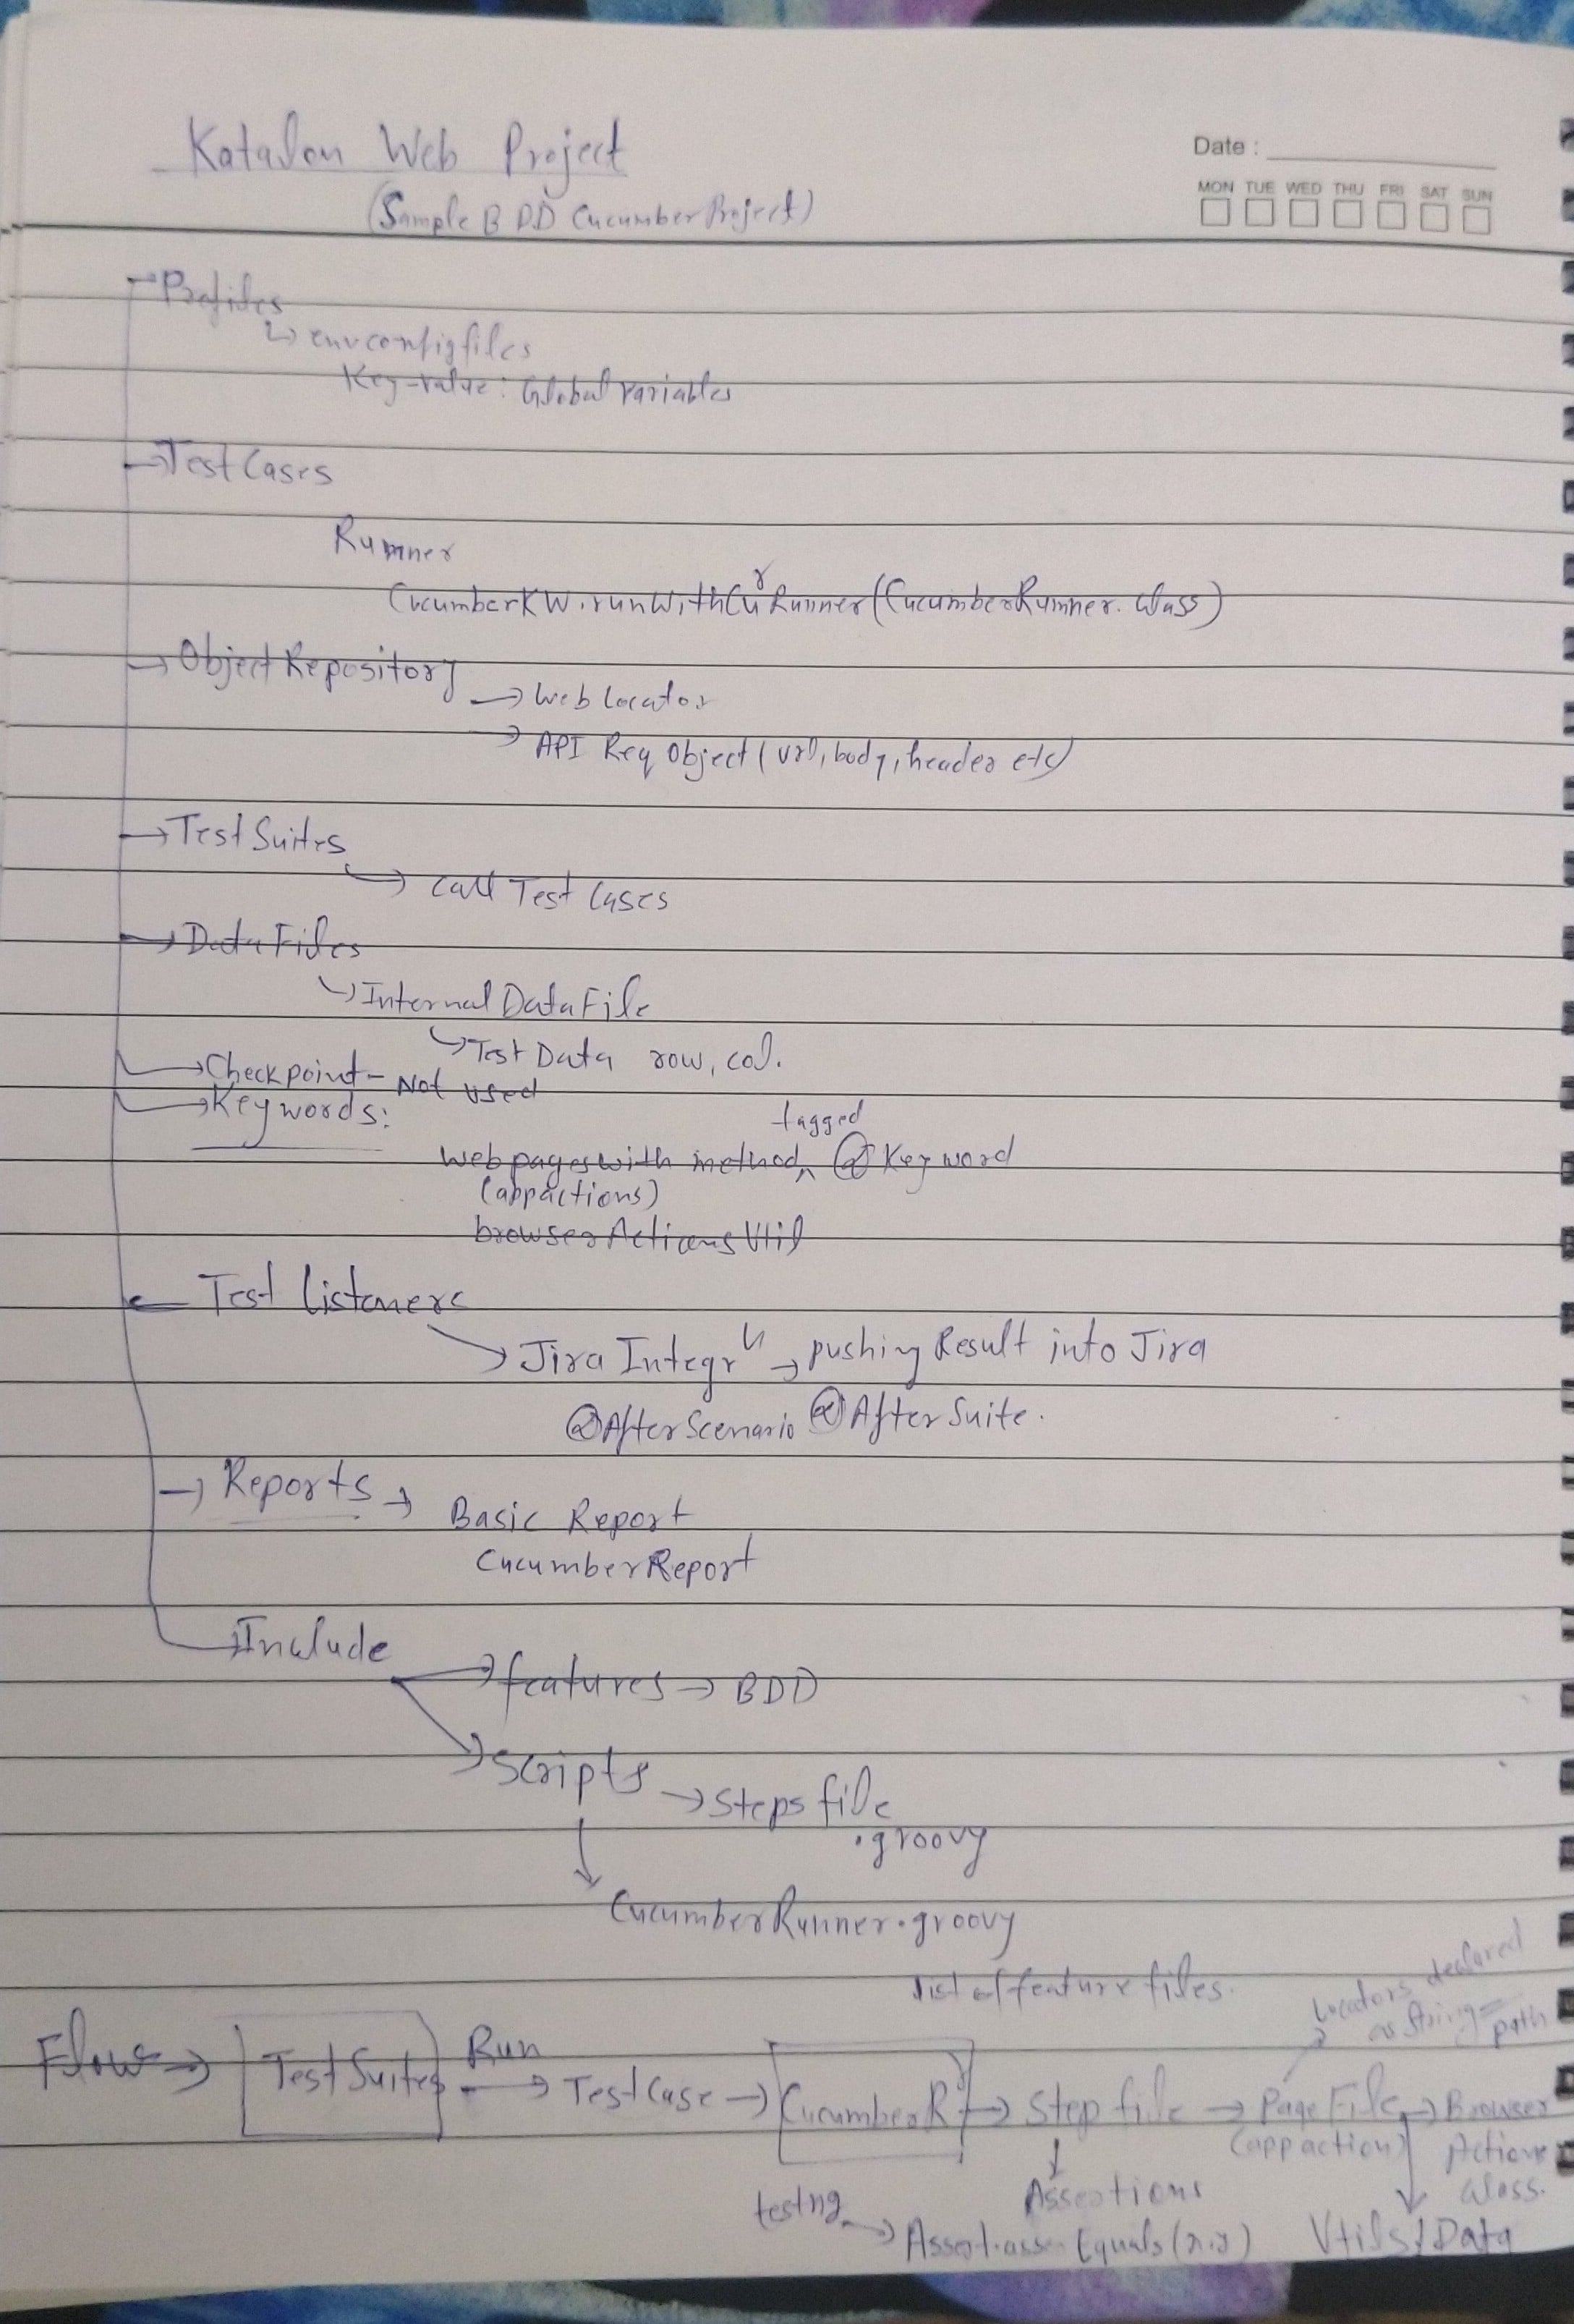 Katalon Web Project
(Sample BDD Cucumber Project)
Date :
MON TUE WED THU FRI SAT SUN
→ Profiles
↳ env config files
Key-value : Global Variables
→ Test Cases
Runner
CucumberKW.runWithCurRunner(CucumberRunner.class)
→ Object Repository
→ Web Locator
→ API Req Object (url, body, header etc)
→ Test Suites
↳ call Test Cases
→ Data Files
↳ Internal Data File
↳ Test Data row, col.
→ Checkpoint - Not used
→ Keywords:
tagged
Web pages with method ^ @Keyword
(appactions)
browserActionsUtil
← Test Listeners
→ Jira Integrⁿ → pushing Result into Jira
@AfterScenario @AfterSuite.
→ Reports → Basic Report
CucumberReport
→ Include
→ features → BDD
→ Scripts → Steps file
.groovy
↓
CucumberRunner.groovy
list of feature files.
Locators declared
as String = path
Flow ⇒ Test Suites Run → TestCase → CucumberRʳ → Step file → Page File → Browser
(app action) Actions
Class.
↓ Assertions
testng → Assert.assertEquals(x,y)
Utils / Data